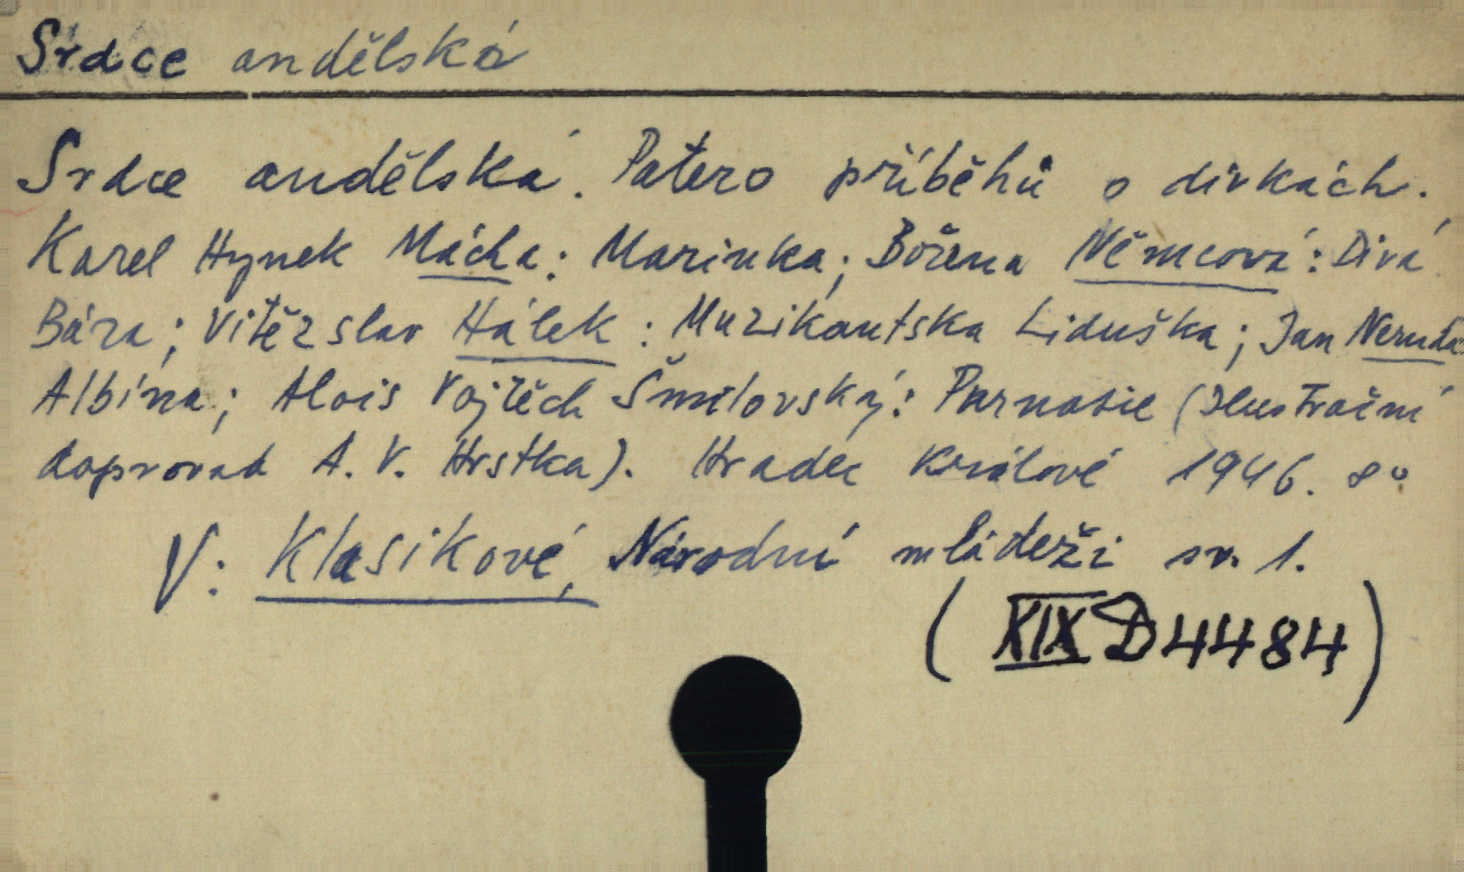 Srdce andělská
Srdce andělská. Patero příběhů o dívkách.
Karel Hynek Mácha: Marinka; Božena Němcová: Divá
Bára; Vítězslav Hálek: Muzikantska Liduška; Jan Neruda
Albína; Alois Vojtěch Šmilovský: Parnasie (Ilustrační
doprovod A. V. Hrstka). Hradec Králové 1946. 8°
V: Klasikové, Národní mládeži sv. 1.
(XIX D 4484)